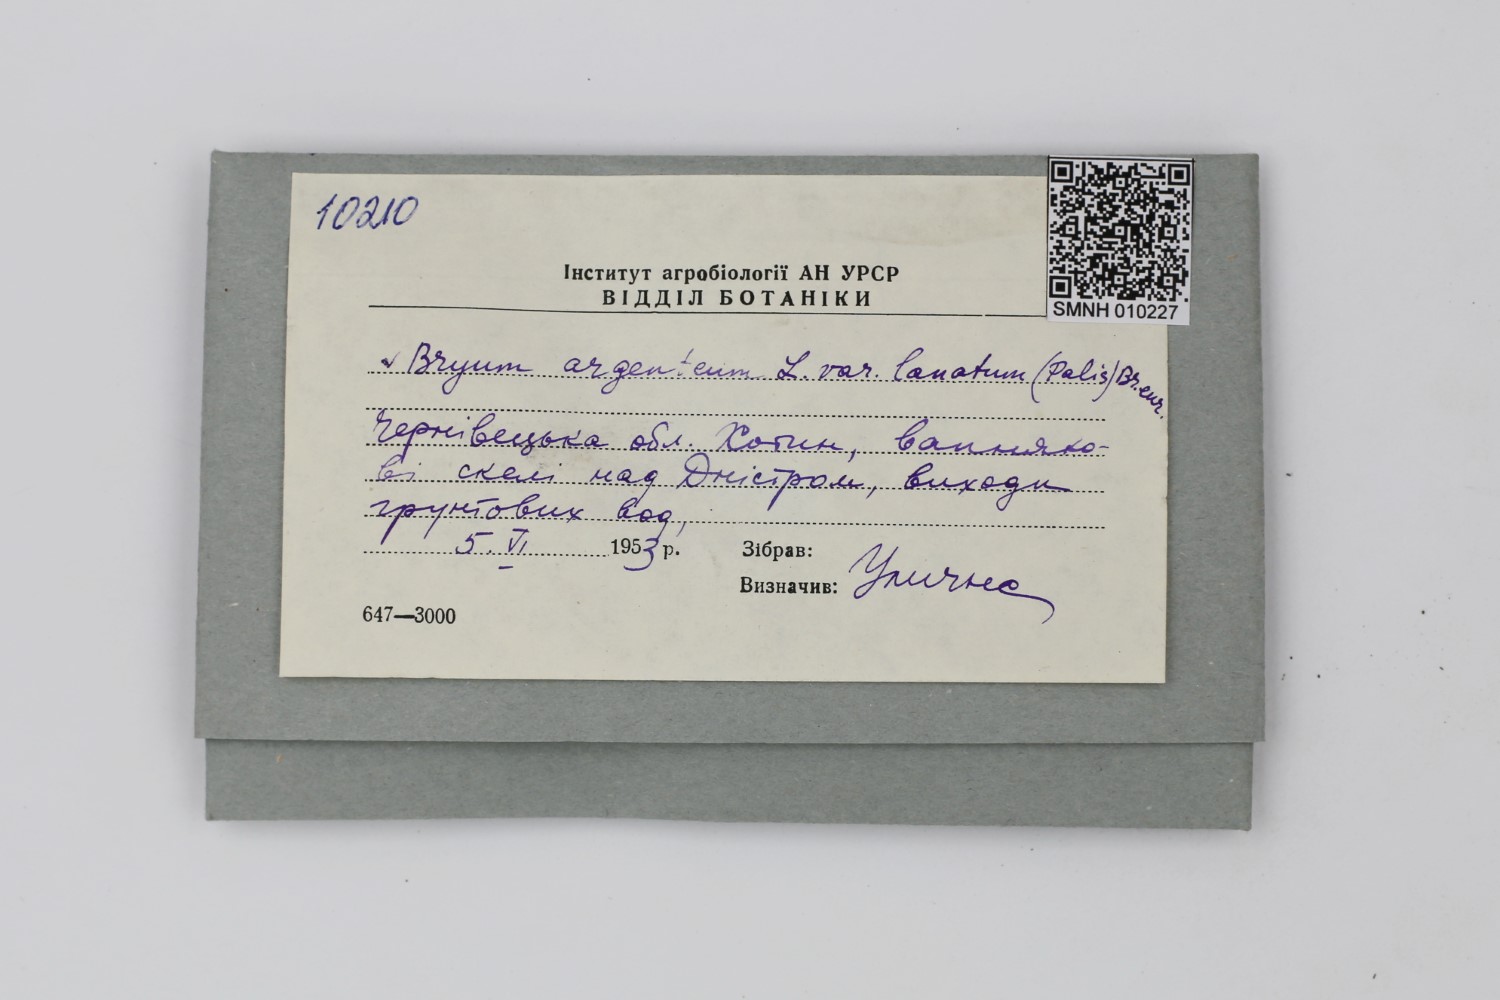 10210
SMNH 010227
Інститут агробіології АН УРСР
ВІДДІЛ БОТАНІКИ
Bryum argenteum L. var. lanatum (Palis) Br. eur.
Чернівецька обл. Хотин, вапняко-
ві скелі над Дністром, виходи
грунтових вод,
5. VI 1953 р.
Зібрав:
Визначив: Улична
647—3000